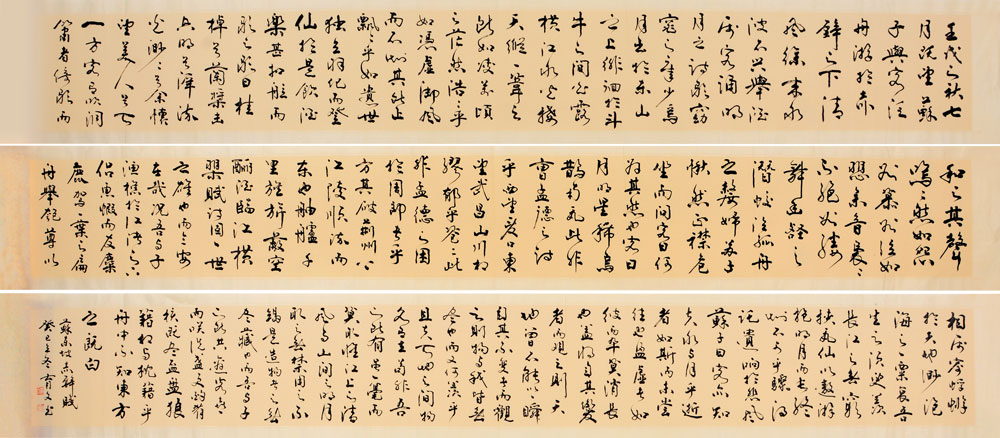 壬戌之秋七
月既望蘇
子與客泛
舟遊於赤
壁之下清
風徐來水
波不興舉酒
屬客誦明
月之詩歌窈
窕之章少焉
月出於東山
之上徘徊於斗
牛之間白露
橫江水光接
天縱一葦之
所如凌萬頃
之茫然浩浩乎
如憑虛御風
而不知其所止
飄飄乎如遺世
獨立羽化而登
仙於是飲酒
樂甚扣舷而
歌之歌曰桂
棹兮蘭槳擊
空明兮溯流
光渺渺兮余懷
望美人兮天
一方客有吹洞
簫者倚歌而
和之其聲
嗚嗚然如怨
如慕如泣如
訴余音裊裊
不絕如縷
舞幽壑之
潛蛟泣孤舟
之嫠婦蘇子
愀然正襟危
坐而問客曰何
為其然也客曰
月明星稀烏
鵲南飛此非
曹孟德之詩
乎西望夏口東
望武昌山川相
繆鬱乎蒼蒼此
非孟德之困
於周郎者乎
方其破荊州下
江陵順流而
東也舳艫千
里旌旗蔽空
釃酒臨江橫
槊賦詩固一世
之雄也而今安
在哉況吾與子
漁樵於江渚之上
侶魚蝦而友麋
鹿駕一葉之扁
舟舉匏尊以
相屬寄蜉蝣
於天地渺滄
海之一粟哀吾
生之須臾羨
長江之無窮
挾飛仙以遨遊
抱明月而長終
知不可乎驟得
託遺響於悲風
蘇子曰客亦知
夫水與月乎逝
者如斯而未嘗
往也盈虛者如
彼而卒莫消長
也蓋將自其變
者而觀之則天
地曾不能以一瞬
自其不變者而觀
之則物與我皆無
盡也而又何羨乎
且夫天地之間物
各有主苟非吾
之所有雖一毫而
莫取惟江上之清
風與山間之明月
取之無禁用之不
竭是造物者之無
盡藏也而吾與子
之所共適客喜
而笑洗盞更酌肴
核既盡盃盤狼
籍相與枕藉乎
舟中不知東方
之既白
蘇東坡赤壁賦
癸巳冬育文書